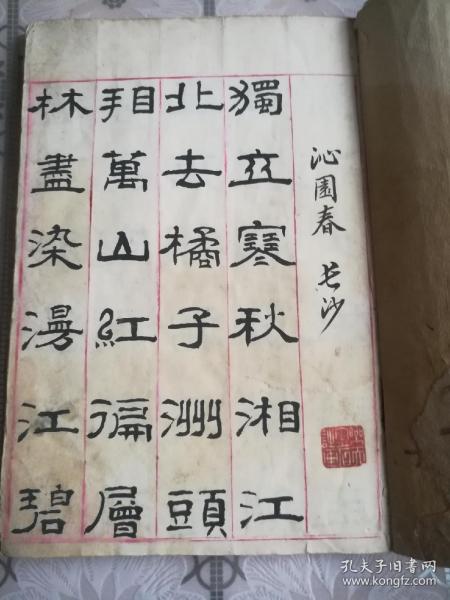 沁園春 长沙
獨立寒秋湘江
北去橘子洲頭
相萬山紅徧層
林盡染漫江碧
孔夫子旧书网
www.kongfz.com